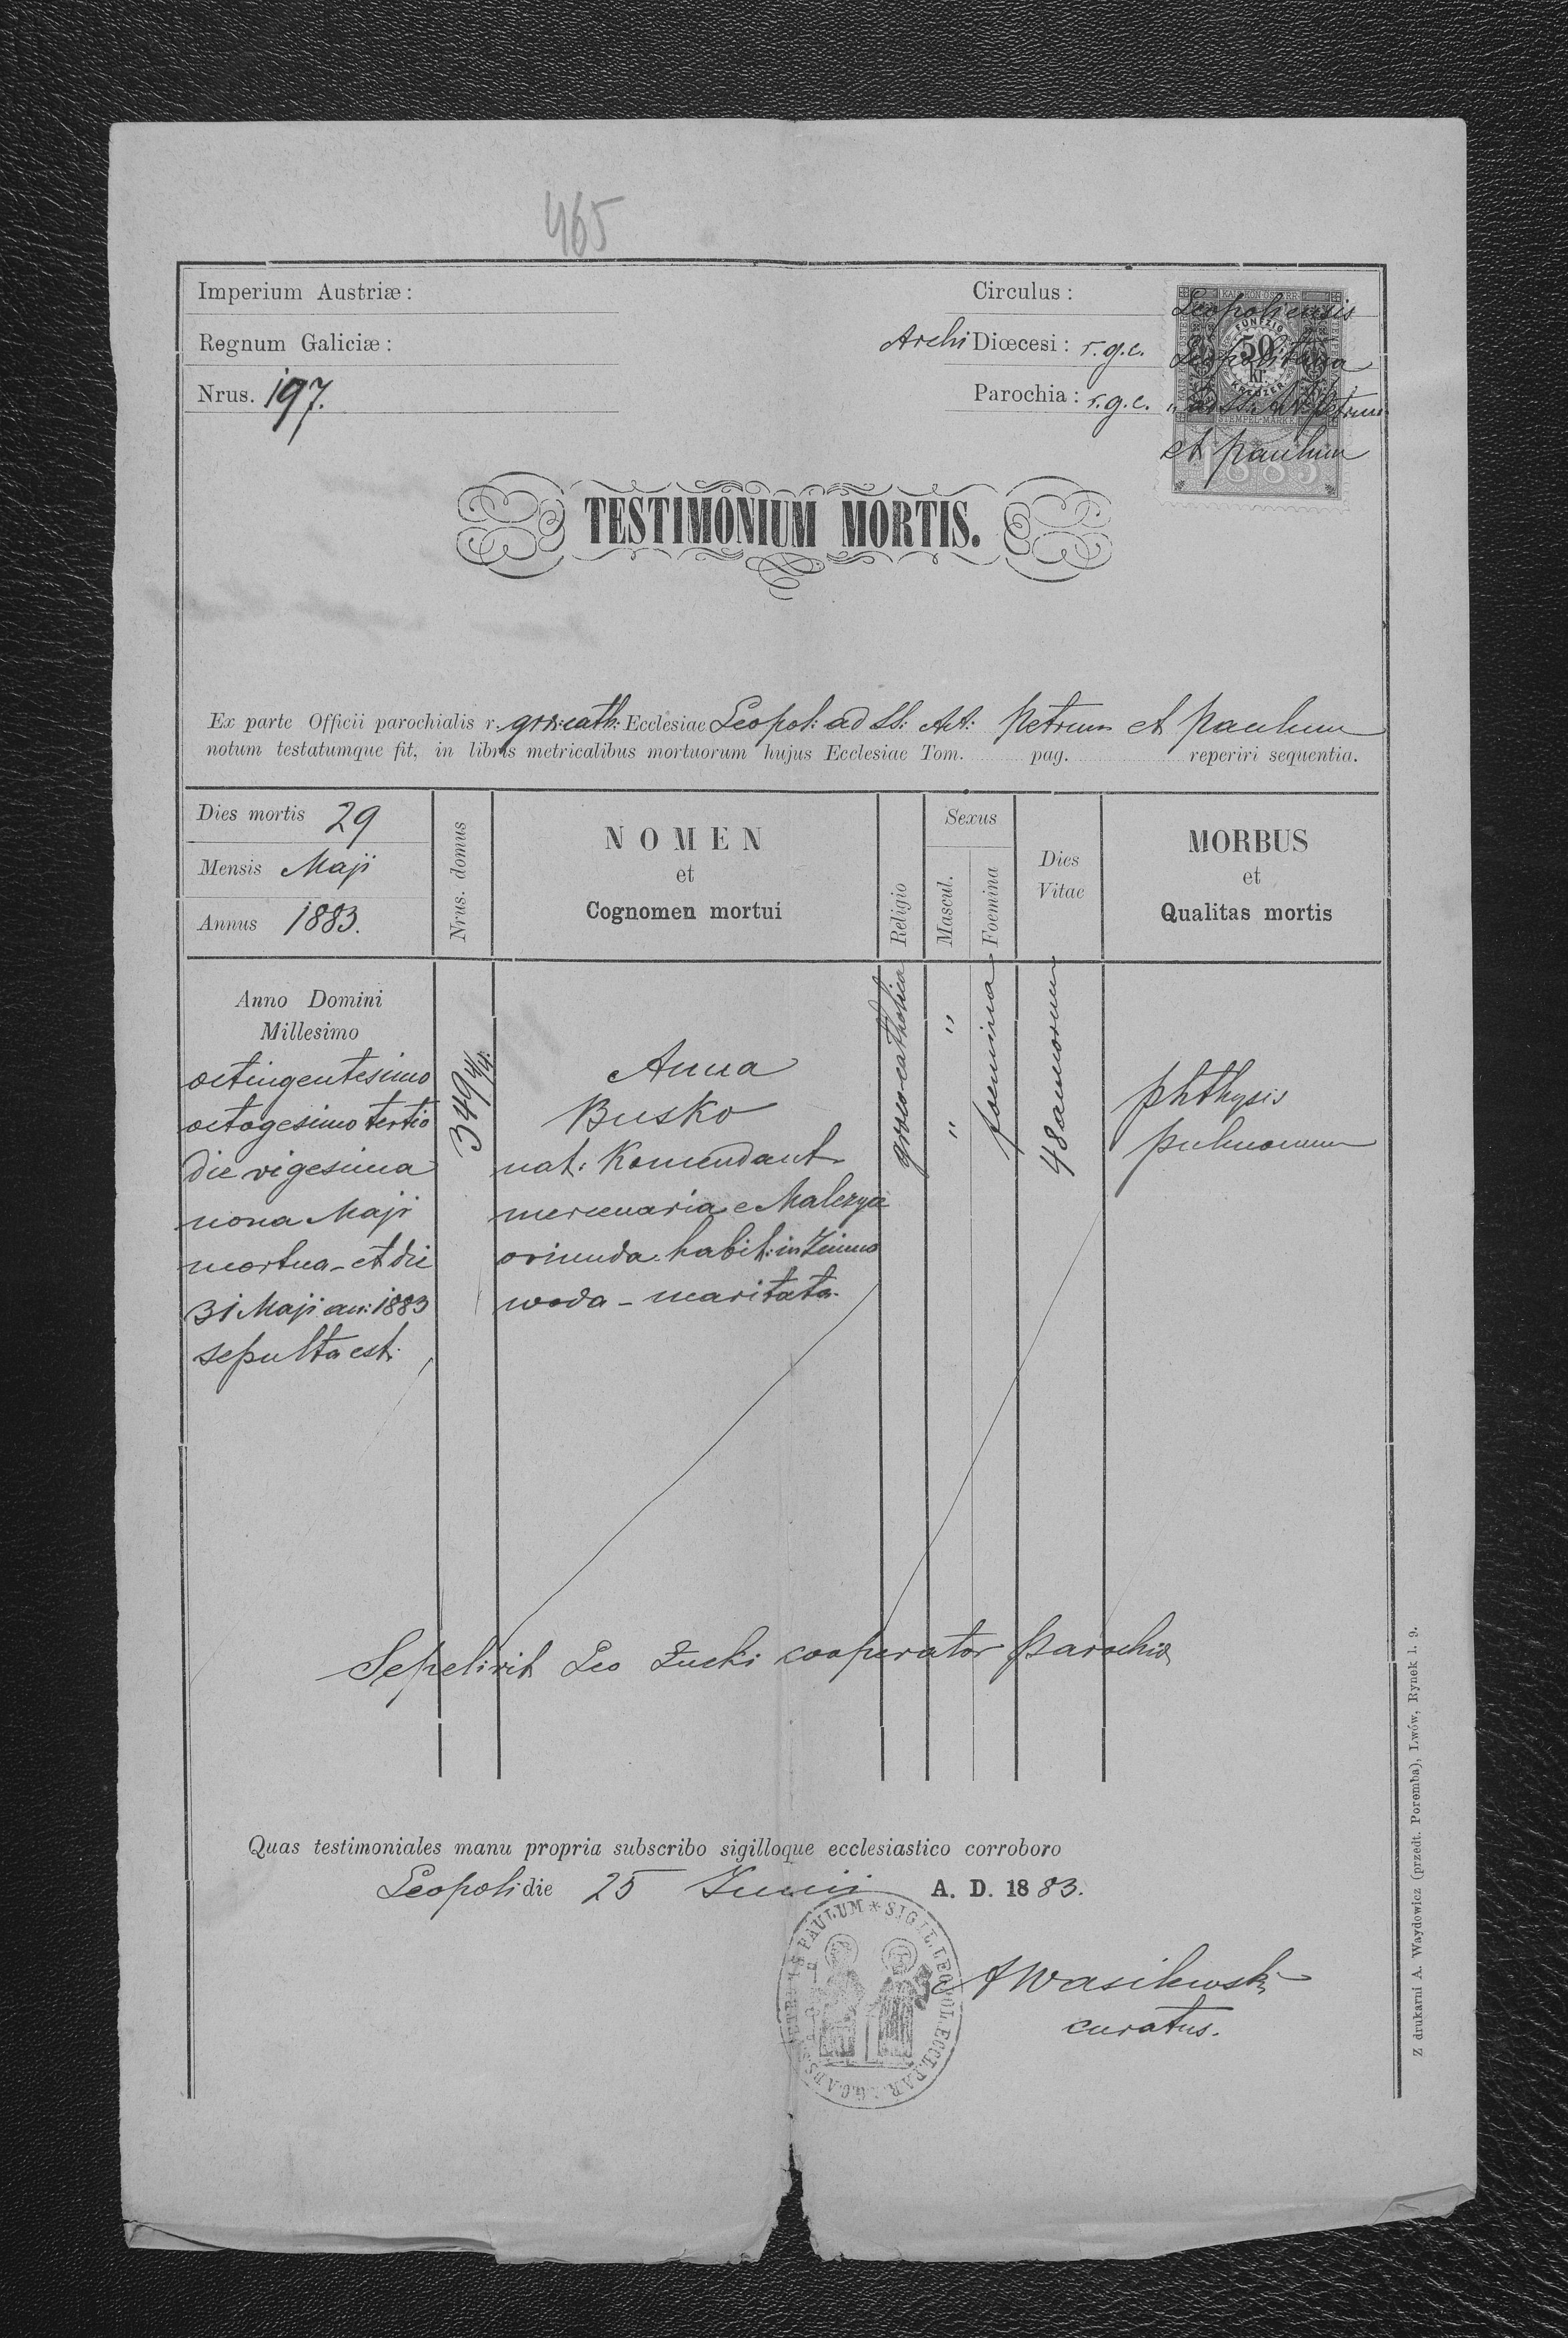 465
Imperium Austriæ:
Circulus: Leopoliensis
Regnum Galiciæ:
Archi Diœcesi: r.g.c. Leopolitana
Nrus. 197.
Parochia: r.g.c. "ad SS. Ap. Petrum
et Paulum
FÜNFZIG
50
kr.
KREUZER
STEMPEL-MARKE
1883
TESTIMONIUM MORTIS.
Ex parte Officii parochialis r. gr: cath: Ecclesiae Leopol: ad SS: Ap: Petrum et Paulum
notum testatumque fit, in libris metricalibus mortuorum hujus Ecclesiae Tom. pag. reperiri sequentia.
Dies mortis 29
Mensis Maji
Annus 1883.
Nrus. domus
NOMEN
et
Cognomen mortui
Religio
Sexus
Mascul.
Foemina
Dies
Vitae
MORBUS
et
Qualitas mortis
Anno Domini
Millesimo
octingentesimo
octogesimo tertio
die vigesima
nona Maji
mortua - et die
31 Maji an: 1883
sepulta est.
349 4/4.
Anna
Busko
nat: Komendant
mercenaria e Malczyce
oriunda. habit: in Zimno
woda - maritata.
graeco-catholica
" "
foemina
48 annorum
phthysis
pulmonum
Sepelivit Leo Zucki cooperator parochiæ
Quas testimoniales manu propria subscribo sigilloque ecclesiastico corroboro
Leopoli die 25 Junii A. D. 1883.
PAULUM * SIGIL. LEOPOL. ECCL. PAR.
AWasilewski
curatus.
Z drukarni A. Waydowicz (przedt. Poremba), Lwów, Rynek l. 9.